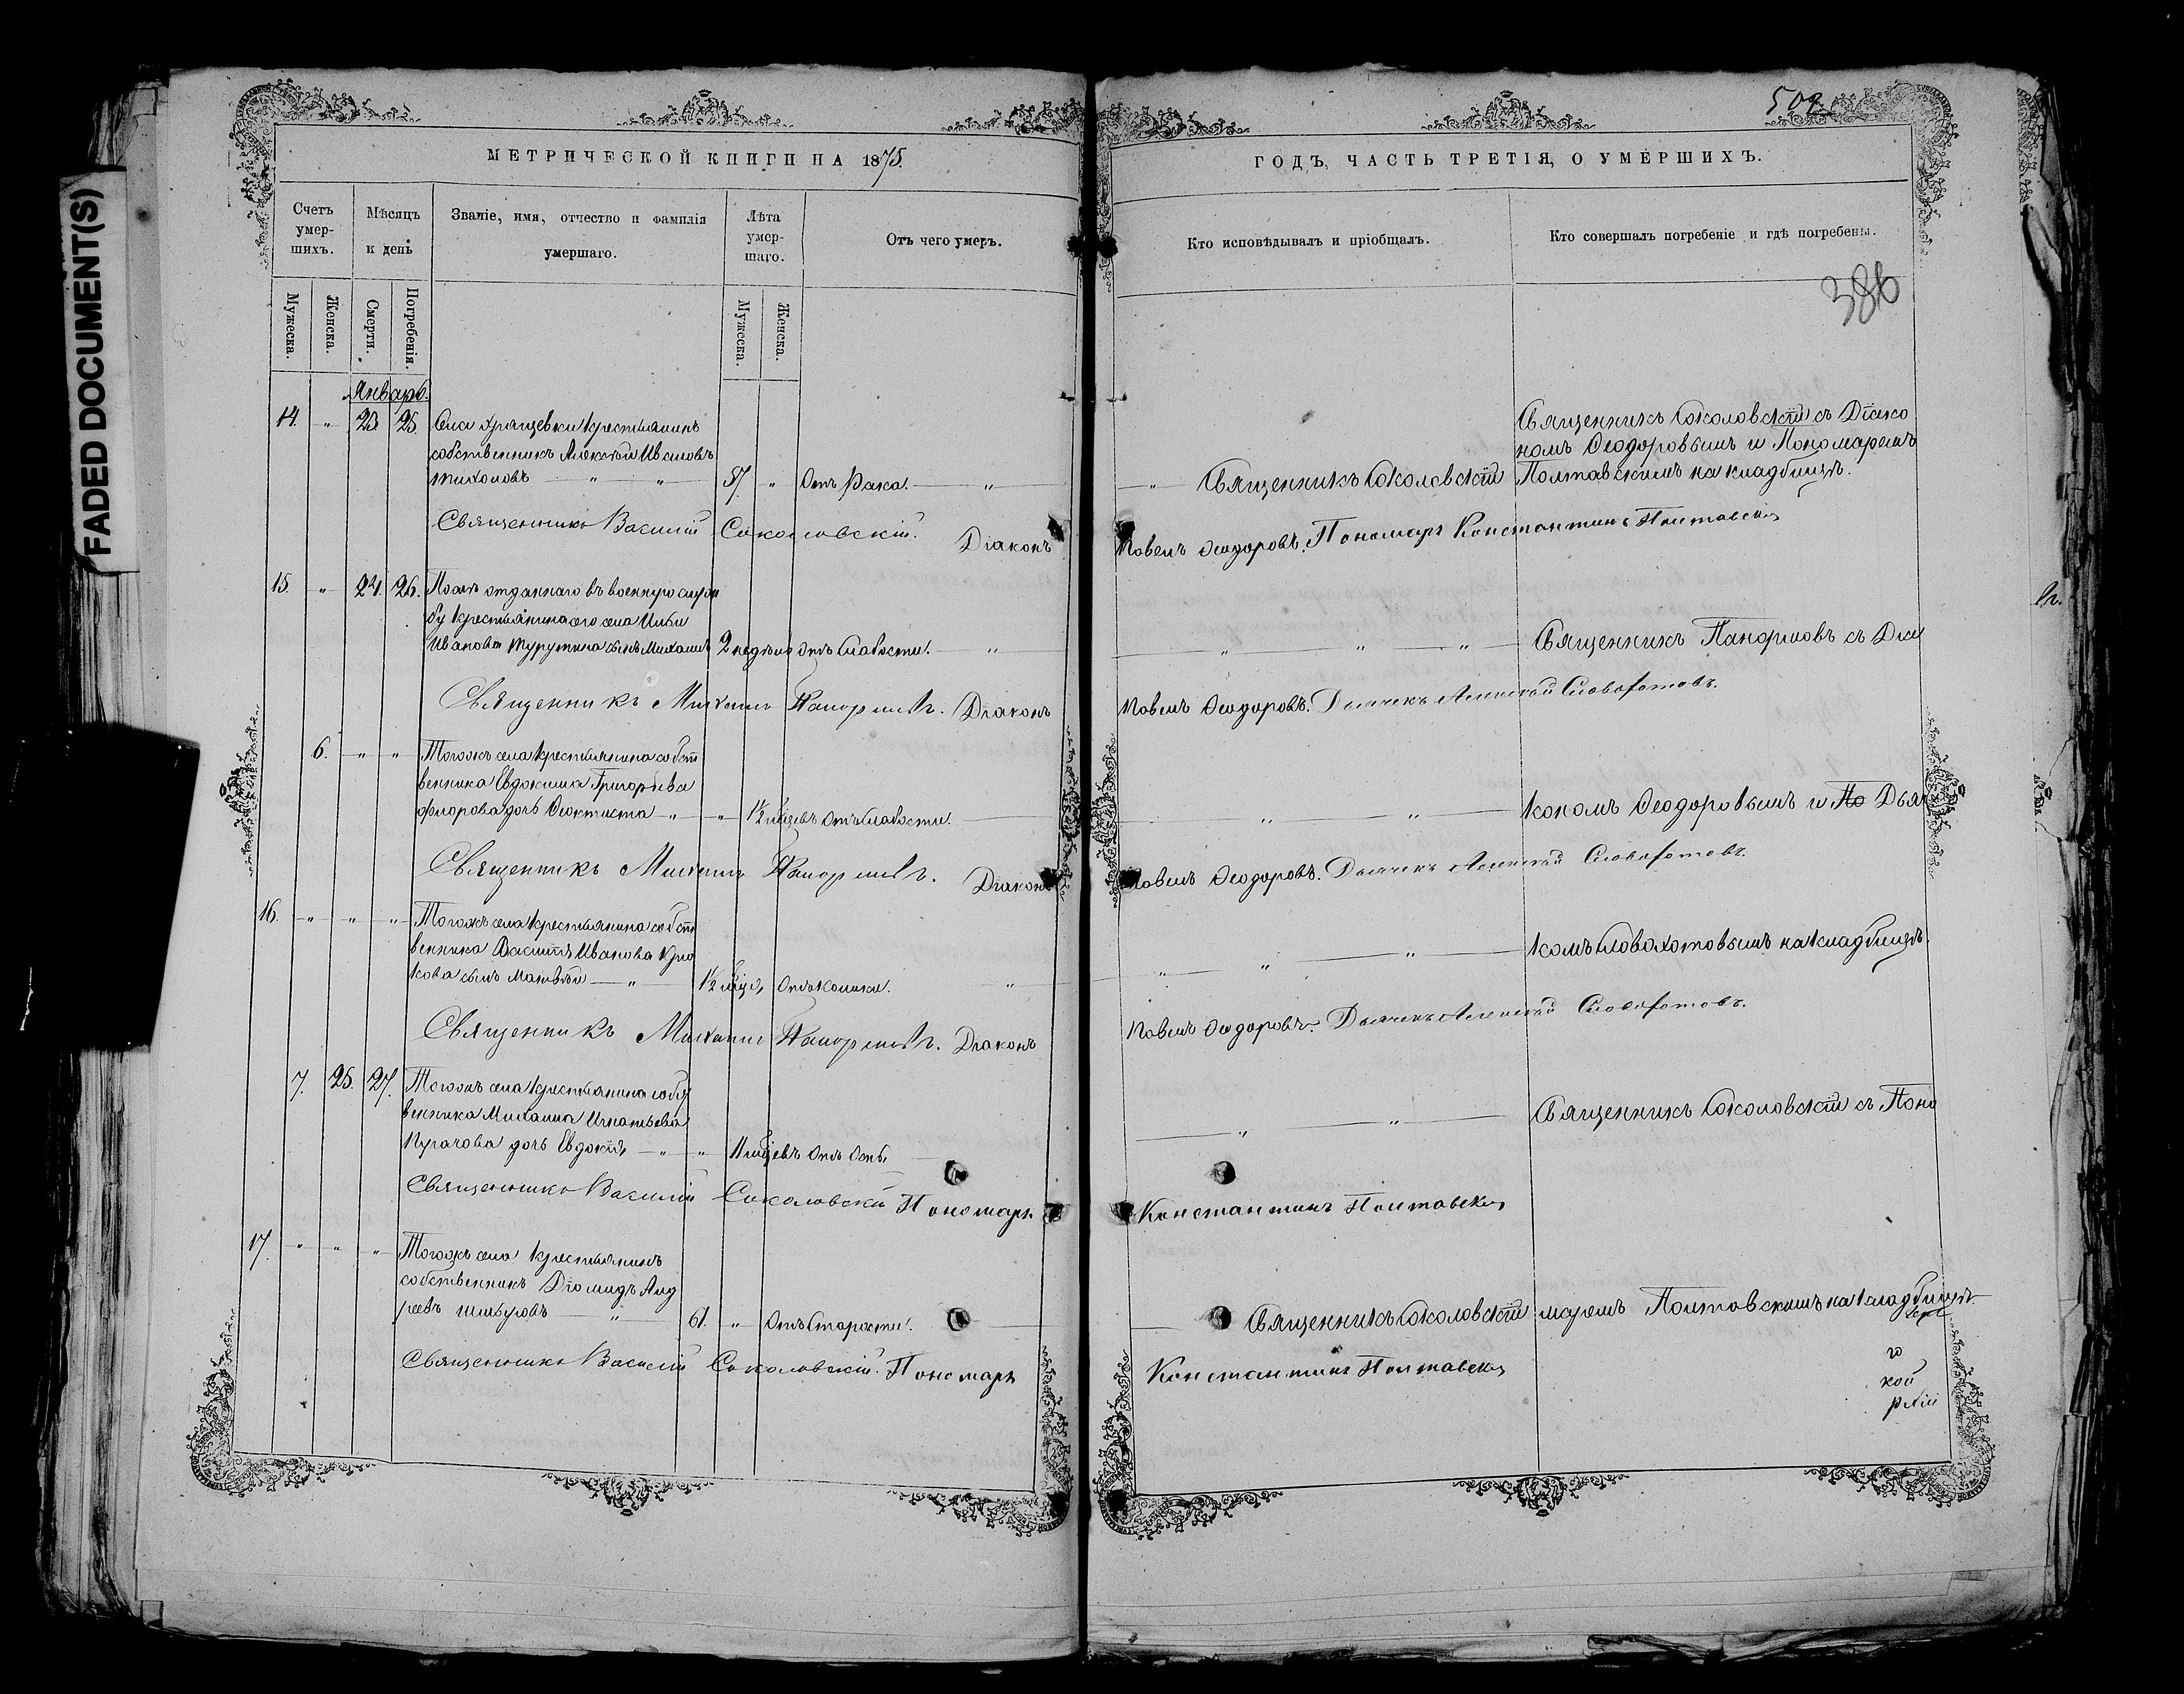 FADED DOCUMENT(S)
502
МЕТРИЧЕСКОЙ КНИГИ НА 1875.
ГОДЪ, ЧАСТЬ ТРЕТІЯ, О УМЕРШИХЪ.
Счетъ умер-шихъ.
Мѣсяцъ и день
Званіе, имя, отчество и фамилія умершаго.
Лѣта умер-шаго.
Отъ чего умеръ.
Кто исповѣдывалъ и пріобщалъ.
Кто совершалъ погребеніе и гдѣ погребены.
386
Мужеска.
Женска.
Смерти.
Погребенія.
Мужеска.
Женска.
Январь.
14. " 23 25. Села Хрящевки крестьянинъ
собственникъ Алексѣй Ивановъ
Тихоновъ " " 57. " Отъ рака. "
" Священникъ Соколовскій
Священникъ Соколовскій съ Діако
номъ Ѳеодоровымъ и Пономаремъ
Полтавскимъ на кладбищѣ.
Священникъ Василій Соколовскій. Діаконъ Павелъ Ѳеодоровъ. Пономарь Константинъ Полтавскій
15. " 24. 26. Posлѣ отданнаго въ военную служ
бу крестьянина сего села Ильи
Иванова сынъ Михаилъ 2 недѣли отъ слабости. "
" " " Священникъ Панормовъ съ Діа
Священникъ Михаилъ Панормовъ. Діаконъ Павелъ Ѳеодоровъ. Дьячекъ Алексѣй Словохотовъ.
6. " " Тогожъ села крестьянина собст
венника Евдокима Григорьева
Флорова дочь Ѳеоктиста " " 1½ мѣсяцевъ отъ слабости.
" " кономъ Ѳеодоровымъ и По Дьяч
Священникъ Михаилъ Панормовъ. Діаконъ Павелъ Ѳеодоровъ. Дьячекъ Алексѣй Словохотовъ.
16. " " " Тогожъ села крестьянина собст
венника Василія Иванова Крю
кова сынъ Матвѣй " 1½ мѣсяца Отъ колики. "
" " " комъ Словохотовымъ на кладбищѣ.
Священникъ Михаилъ Панормовъ. Діаконъ Павелъ Ѳеодоровъ. Дьячекъ Алексѣй Словохотовъ.
7. 25. 27. Тогожъ села крестьянина собст
венника Михаила Игнатьева
Пугачова дочь Евдокія " " 11 мѣсяцевъ Отъ оспы
" " Священникъ Соколовскій съ Поно
Священникъ Василій Соколовскій Пономарь Константинъ Полтавскій
17. " " " Тогожъ села крестьянинъ
собственникъ Діомидъ Анд
реевъ " 61. " Отъ старости.
Священникъ Соколовскій маремъ Полтавскимъ на кладбищѣ.
Священникъ Василій Соколовскій. Пономарь Константинъ Полтавскій
го
кой